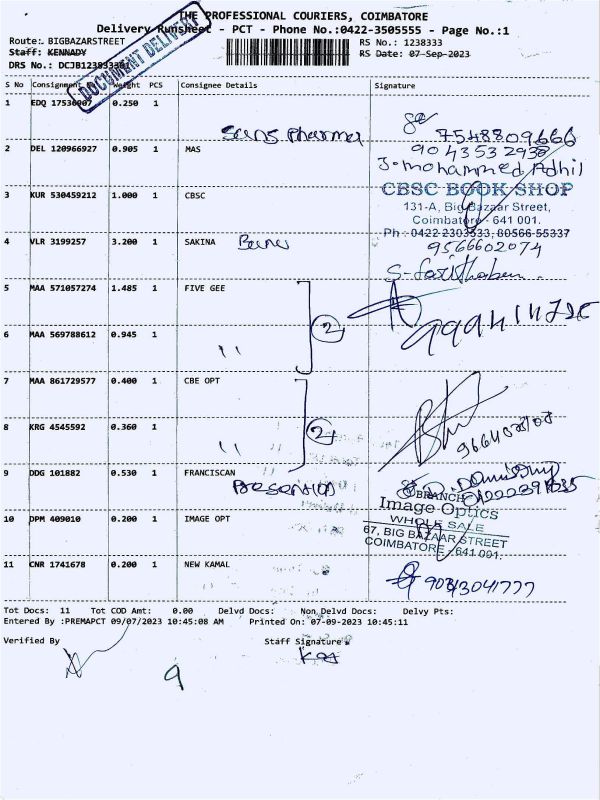 THE PROFESSIONAL COURIERS, COIMBATORE
Delivery Runsheet - PCT - Phone No.:0422-3505555 - Page No.:1
Route: BIGBAZARSTREET
RS No.: 1238333
Staff: KENNADY
RS Date: 07-Sep-2023
DRS No.:
DOCUMENT DELIVERY
S No Consignment Weight PCS Consignee Details Signature
1 EDQ 0.250 1
Sens Pharma
7548809666
2 DEL 120966927 0.905 1 MAS
9043532938
J. mohammed Adhil
3 KUR 530459212 1.000 1 CBSC
CBSC BOOK SHOP
131-A, Big Bazaar Street,
Coimbatore - 641 001.
Ph : 0422-2303533, 80566-55337
4 VLR 3199257 3.200 1 SAKINA
9566602074
5 MAA 571057274 1.485 1 FIVE GEE
2
6 MAA 569788612 0.945 1 "
7 MAA 861729577 0.400 1 CBE OPT
2
8 KRG 4545592 0.360 1 "
9 DDG 101882 0.530 1 FRANCISCAN
BRANCH
Image Optics
WHOLE SALE
67, BIG BAZAAR STREET
COIMBATORE - 641 001.
10 DPM 409010 0.200 1 IMAGE OPT
11 CNR 1741678 0.200 1 NEW KAMAL
Tot Docs: 11 Tot COD Amt: 0.00 Delvd Docs: Non Delvd Docs: Delvy Pts:
Entered By :PREMAPCT 09/07/2023 10:45:08 AM Printed On: 07-09-2023 10:45:11
Verified By Staff Signature
9